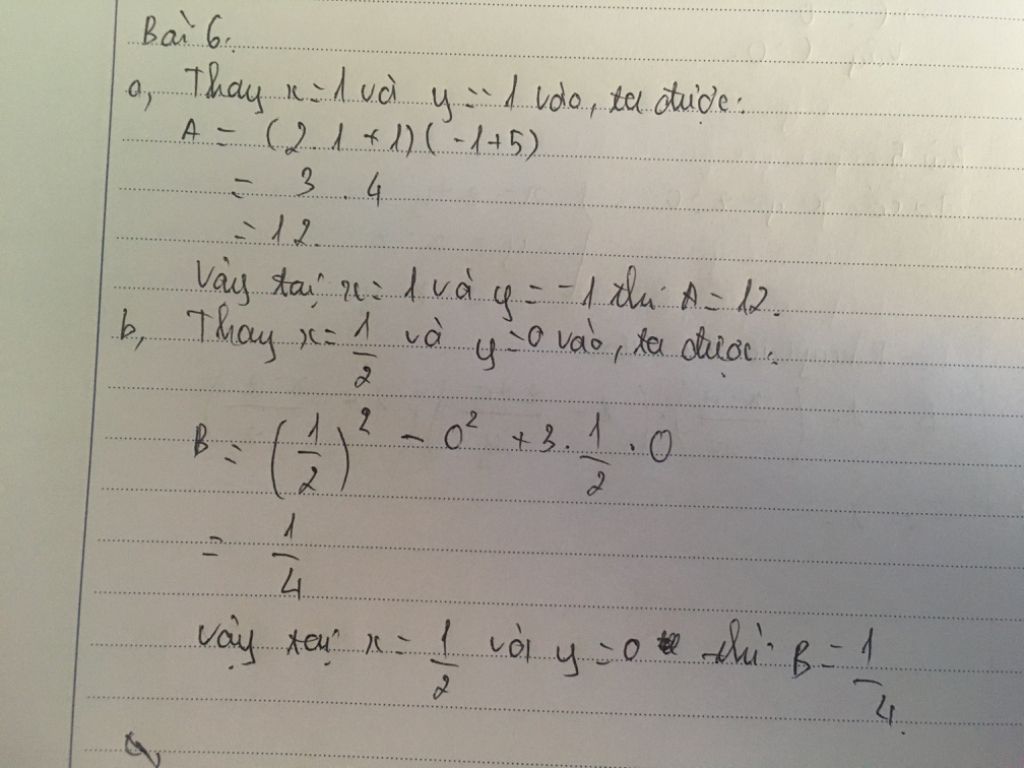 Bài 6:
a, Thay x = 1 và y = -1 vào, ta được:
A = (2.1 + 1)(-1+5)
= 3 . 4
= 12.
Vậy tại x = 1 và y = -1 thì A = 12.
b, Thay x = 1/2 và y = 0 vào, ta được:
B = (1/2)² - 0² + 3 . 1/2 . 0
= 1/4
Vậy tại x = 1/2 với y = 0 thì B = 1/4.